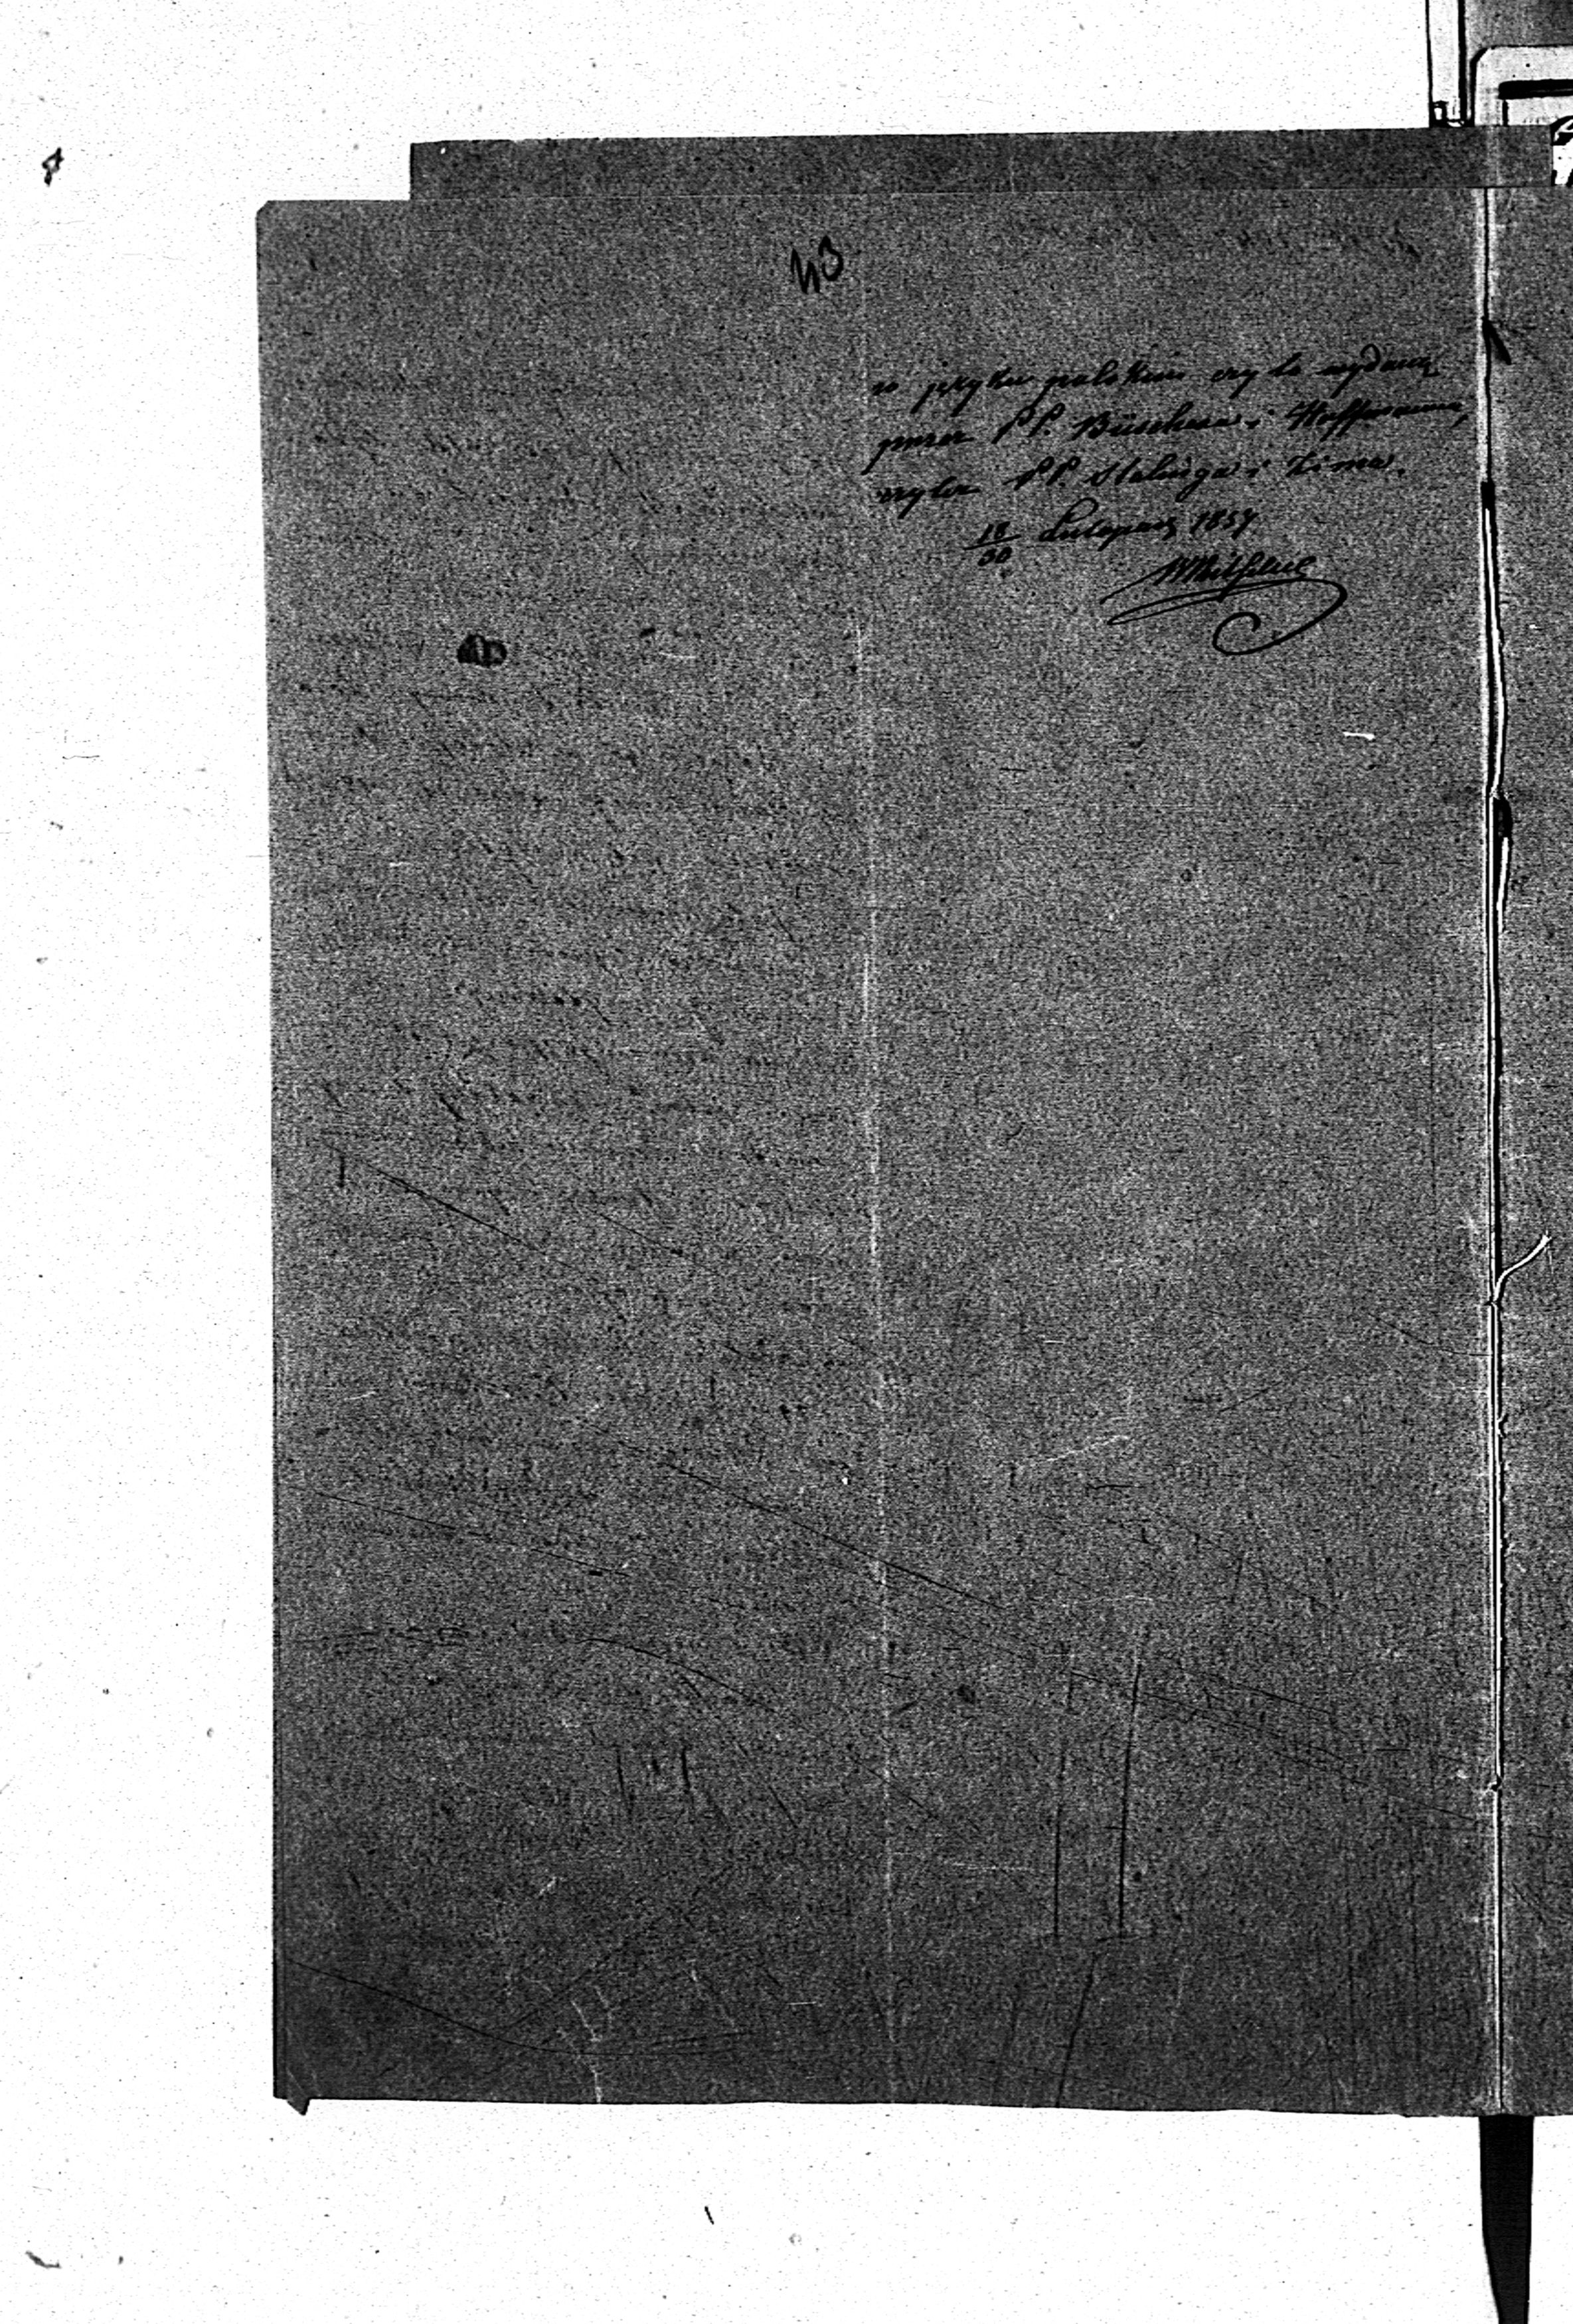 43
w języku polskim czyli wydaną
przez PP. Büschera i Hoffmanna,
czyli PP. Stelinga i Zima.
18/30 Listopada 1857